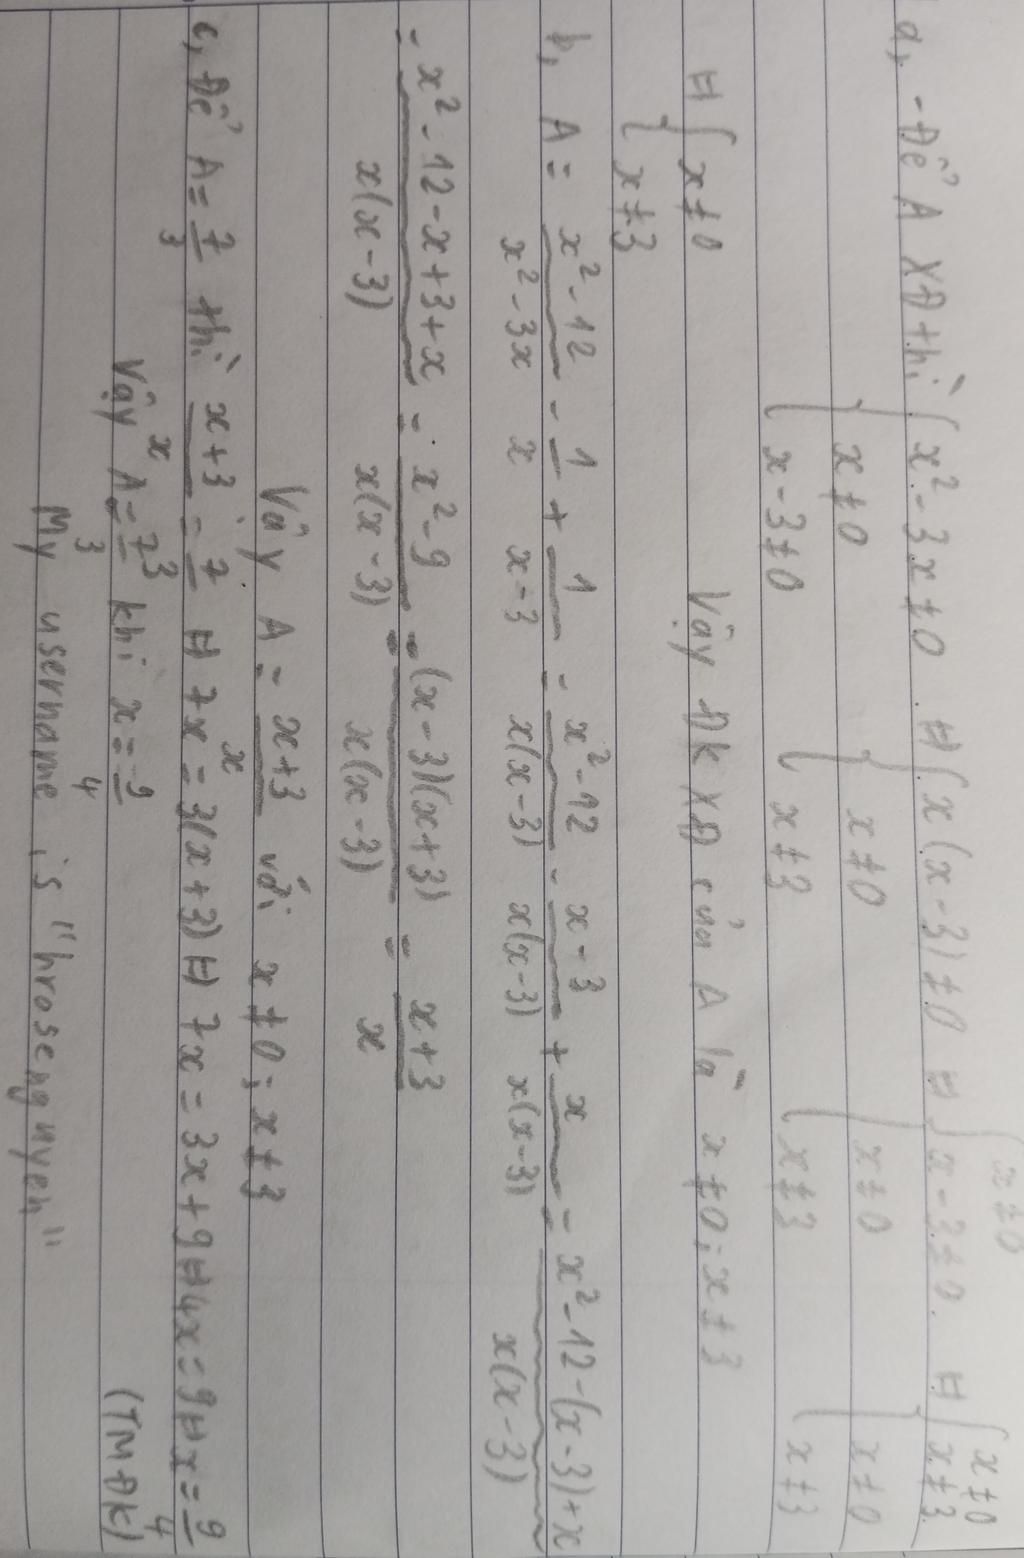 x ≠ 0
a, - Để A XĐ thì { x² - 3x ≠ 0 ⇔ { x(x - 3) ≠ 0 ⇔ { x - 3 ≠ 0 ⇔ { x ≠ 0
x ≠ 0 x ≠ 0 x ≠ 0 x ≠ 3 x ≠ 0
x - 3 ≠ 0 x ≠ 3 x ≠ 3 x ≠ 3
⇔ { x ≠ 0 Vậy ĐKXĐ của A là x ≠ 0 ; x ≠ 3
x ≠ 3
b, A = (x² - 12)/(x² - 3x) - 1/x + 1/(x - 3) = (x² - 12)/(x(x - 3)) - (x - 3)/(x(x - 3)) + x/(x(x - 3)) = (x² - 12 - (x - 3) + x)/(x(x - 3))
= (x² - 12 - x + 3 + x)/(x(x - 3)) = (x² - 9)/(x(x - 3)) = ((x - 3)(x + 3))/(x(x - 3)) = (x + 3)/x
Vậy A = (x + 3)/x với x ≠ 0 ; x ≠ 3
c, Để A = 7/3 thì (x + 3)/x = 7/3 ⇔ 7x = 3(x + 3) ⇔ 7x = 3x + 9 ⇔ 4x = 9 ⇔ x = 9/4
Vậy A = 7/3 khi x = 9/4 (TMĐK)
My username is "hrosengnyen"